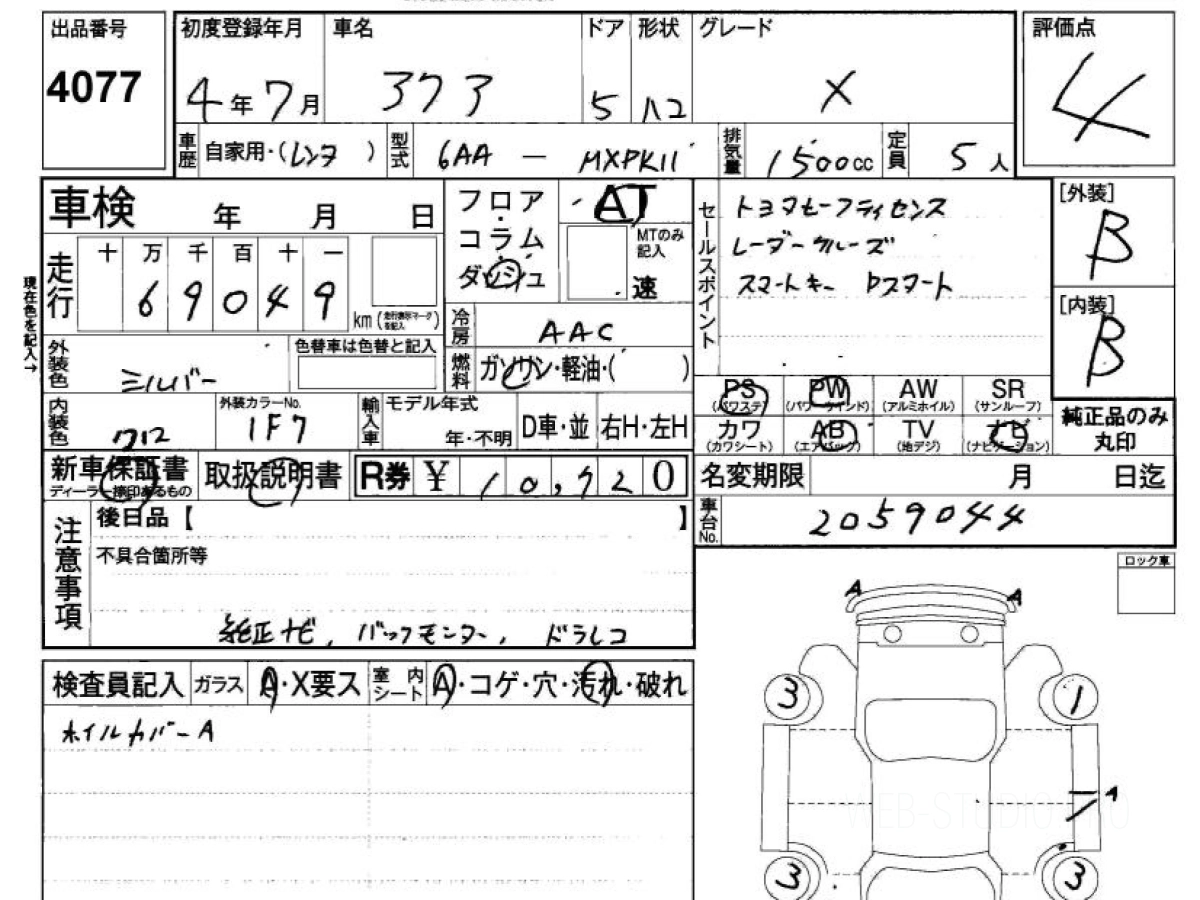 出品番号 初度登録年月 車名 ドア 形状 グレード 評価点
4077 4年7月 373 5 ハコ X 4
車歴 自家用・(レンタ) 型式 6AA - MXPK11 排気量 1500cc 定員 5人
車検 年 月 日 フロア・コラム ダッシュ AT セールスポイント トヨタセーフティセンス [外装]
レーダークルーズ B
スマートキー Dスマート
MTのみ記入 速
走行 十 万 千 百 十 一 [内装]
69049 km (走行表示マークを記入) B
現在色を記入→
冷房 AAC
外装色 シルバー 色替車は色替と記入 燃料 ガソリン・軽油・( )
PS (パワステ) PW (パワーウインド) AW (アルミホイル) SR (サンルーフ)
内装色 クロ 外装カラーNo. 1F7 輸入車 モデル年式 年・不明 D車・並 右H・左H
カワ (カワシート) AB (エアバック) TV (地デジ) ナビ (ナビゲーション) 純正品のみ丸印
新車保証書 ディーラー捺印あるもの 取扱説明書 R券 ¥ 10,720 名変期限 月 日迄
注意事項 後日品【 】 車台No. 2059044
不具合箇所等
純正ナビ, バックモニター, ドラレコ
ロック車
A A
検査員記入 ガラス A・X要ス 室内シート A・コゲ・穴・汚れ・破れ
ホイルカバーA
3 1
A
WEB-STUDIO.PRO
3 3